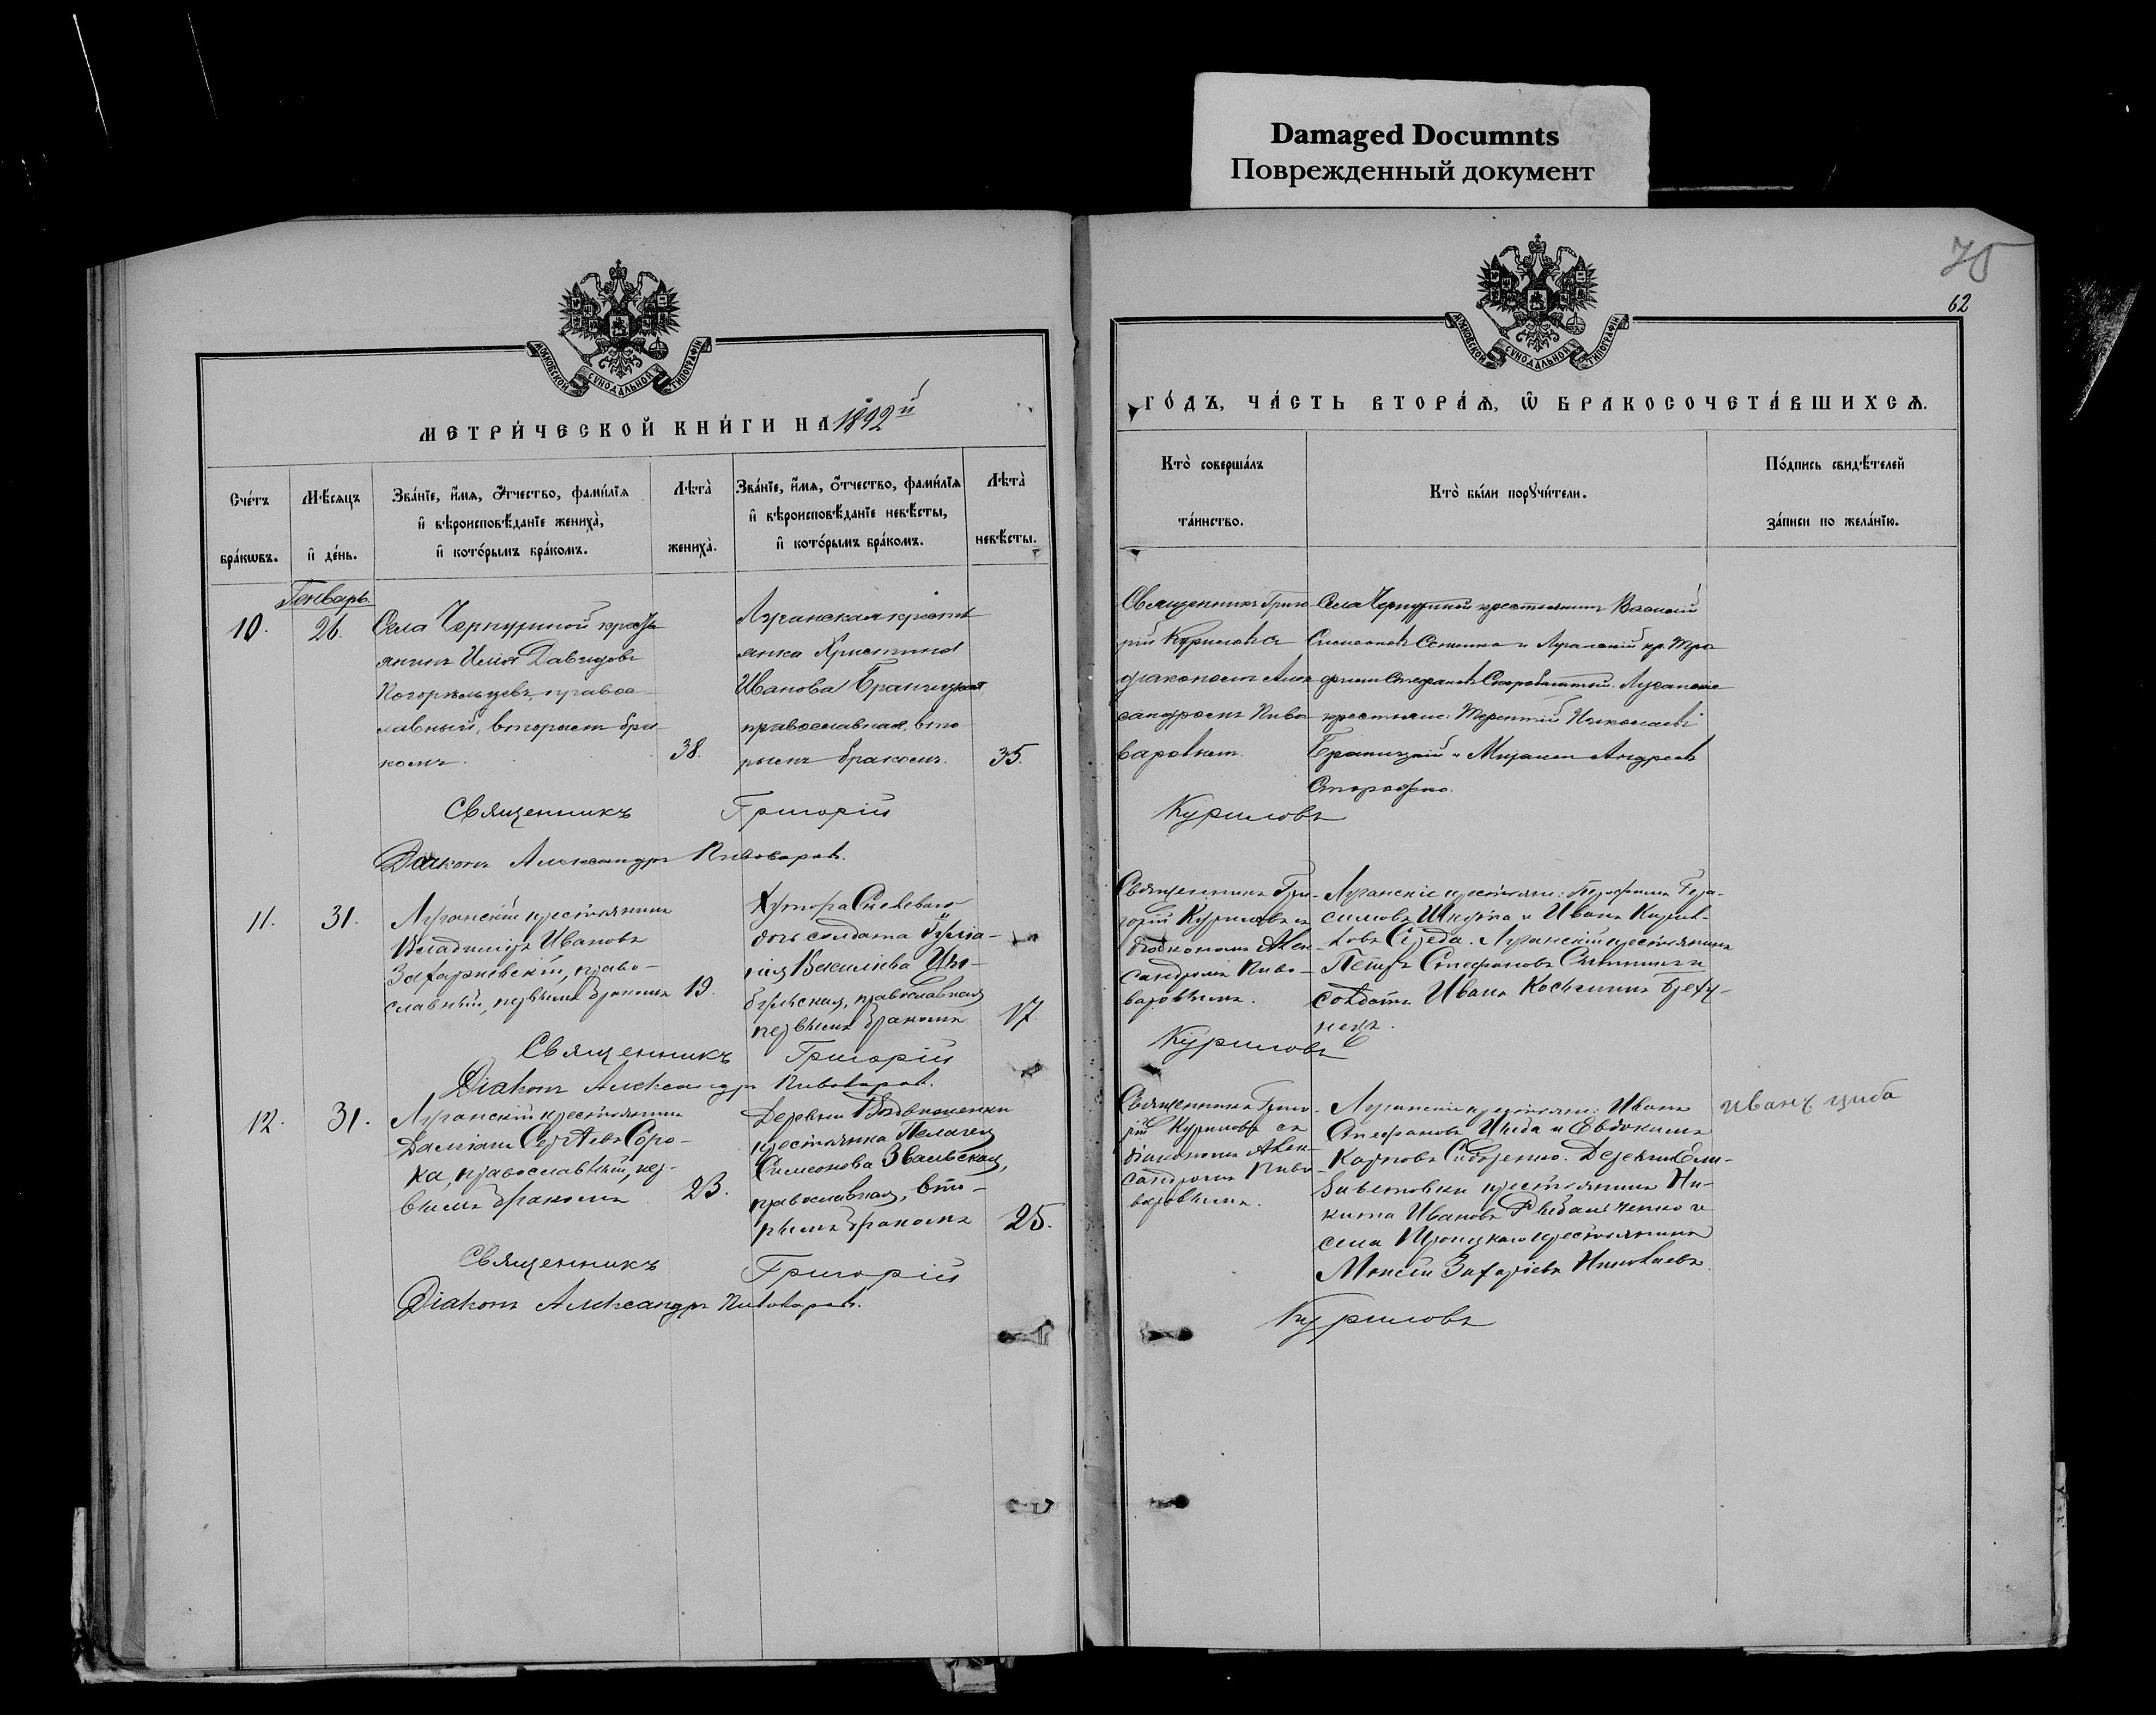 Damaged Documnts
Поврежденный документ
70
62
МОСКОВСКОЙ СѴНОДАЛЬНОЙ ТИПОГРАФІИ
МОСКОВСКОЙ СѴНОДАЛЬНОЙ ТИПОГРАФІИ
МЕТРИ́ЧЕСКОЙ КНИ́ГИ НА 1892й
ГО́ДЪ, ЧА́СТЬ ВТОРА́Ѧ, Ѽ БРАКОСОЧЕТА́ВШИХСѦ.
Сче́тъ бра́кѡвъ.
Мѣ́сяцъ и҆ де́нь.
Зва́нїе, и҆́мѧ, ѻ҆́тчество, фами́лїѧ
и҆ вѣроисповѣ́данїе жениха̀,
и҆ кото́рымъ бра́комъ.
Лѣта̀ жениха̀.
Зва́нїе, и҆́мѧ, ѻ҆́тчество, фами́лїѧ
и҆ вѣроисповѣ́данїе невѣ́сты,
и҆ кото́рымъ бра́комъ.
Лѣта̀ невѣ́сты.
Кто̀ соверша́лъ
та́инство.
Кто̀ бы́ли порꙋчи́тели.
По́дпись свидѣ́телей
за́писи по жела́нїю.
Генварь.
10.
26.
Села Черкуриной кресть
янинъ Илія Давидовъ
Погорѣльцевъ, правос
лавный, вторымъ бра
комъ.
38.
Луганская кресть
янка Христина
Иванова Браницкая
православная, вто
рымъ бракомъ.
35.
Священникъ Григо
рій Куриловъ съ
діакономъ Алек
сандромъ Пиво
варовымъ.
крестьянинъ Василій
Симеоновъ Сененко и Луганскій кр. Тро
фимъ Стефановъ Луганскіе
крестьяне: Терентій Николаевъ
Браницкій и Михаилъ Андреевъ
Священникъ Григорій Куриловъ
Діаконъ Александръ Пивоваровъ.
11.
31.
Луганскій крестьянинъ
Владиміръ Ивановъ
Захаржевскій, право-
славный, первымъ бракомъ
19.
Хутора
дочь солдата
Василіева Цы-
бульская, православная
первымъ бракомъ
17.
Священникъ Гри-
горій Куриловъ съ
діакономъ Алек-
сандромъ Пиво-
варовымъ.
Луганскіе крестьяне: Гера-
симовъ Шкурка и Иванъ Кирил-
ловъ Середа. Луганскій крестьянинъ
Петръ Стефановъ и
солдатъ Иванъ Косьминъ Бреху-
нецъ.
Священникъ Григорій Куриловъ
Діаконъ Александръ Пивоваровъ.
12.
31.
Луганскій крестьянинъ
Даміанъ Сергѣевъ Соро-
ка, православный, пер-
вымъ бракомъ
23.
Деревни Воздвиженки
крестьянка Пелагея
Симеонова Звальская,
православная, вто-
рымъ бракомъ
25.
Священникъ Григо-
рій Куриловъ съ
діакономъ Алек-
сандромъ Пиво-
варовымъ.
Луганскіе крестьяне: Иванъ
Стефановъ Цыба и Евдокимъ
Карповъ Сидоренко. Деревни Ели-
заветовки крестьянинъ Ни-
кита Ивановъ Рыбальченко и
села Троицкаго крестьянинъ
Моисей Захаріевъ Николаевъ.
Иванъ циба
Священникъ Григорій Куриловъ
Діаконъ Александръ Пивоваровъ.